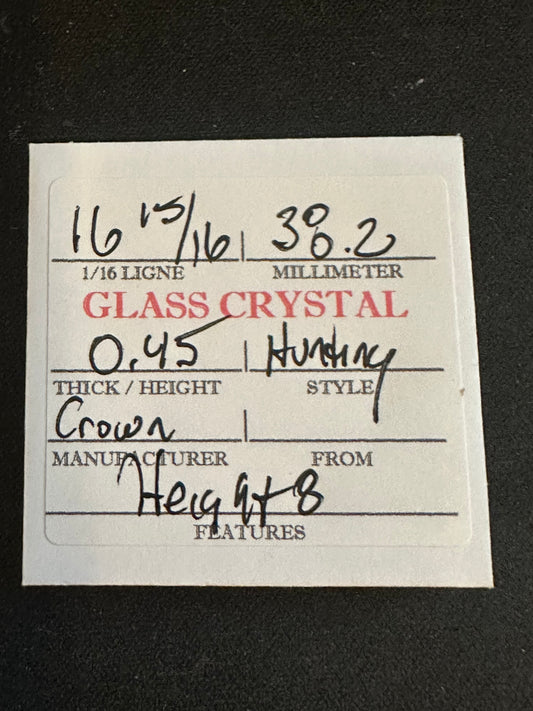 16 15/16 | 38.2
1/16 LIGNE MILLIMETER
GLASS CRYSTAL
0.45 | Hunting
THICK / HEIGHT STYLE
Crown |
MANUFACTURER FROM
Height 8
FEATURES